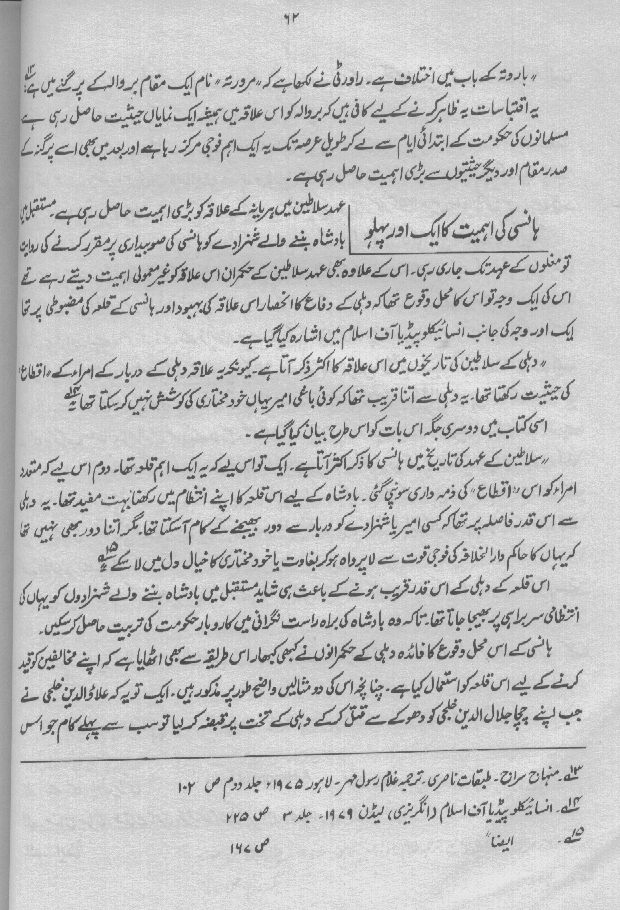 ۶۲
"باروتہ کے باب میں اختلاف ہے۔ راورٹی نے لکھا ہے کہ "مروتہ" نام ایک مقام بروالہ کے پرگنے میں ہے؀۱۳
یہ اقتباسات یہ ظاہر کرنے کے لیے کافی ہیں کہ بروالہ کو اس علاقہ میں ہمیشہ ایک نمایاں حیثیت حاصل رہی ہے
مسلمانوں کی حکومت کے ابتدائی ایام سے لے کر طویل عرصہ تک یہ ایک اہم فوجی مرکز رہا ہے اور بعد میں بھی اسے پرگنہ کے
صدر مقام اور دیگر حیثیتوں سے بڑی اہمیت حاصل رہی ہے۔
ہانسی کی اہمیت کا ایک اور پہلو
عہد سلاطین میں ہریانہ کے علاقہ کو بڑی اہمیت حاصل رہی ہے۔ مستقبل میں
بادشاہ بننے والے شہزادے کو ہانسی کی صوبیداری پر مقرر کرنے کی روایت
تو مغلوں کے عہد تک جاری رہی۔ اس کے علاوہ بھی عہد سلاطین کے حکمران اس علاقہ کو غیر معمولی اہمیت دیتے رہے تھے
اس کی ایک وجہ تو اس کا محل وقوع تھا کہ دہلی کے دفاع کا انحصار اس علاقہ کی بہبود اور ہانسی کے قلعہ کی مضبوطی پر تھا
ایک اور وجہ کی جانب انسائیکلوپیڈیا آف اسلام میں اشارہ کیا گیا ہے۔
"دہلی کے سلاطین کی تاریخوں میں اس علاقہ کا اکثر ذکر آتا ہے۔ کیونکہ یہ علاقہ دہلی کے دربار کے امراء کے "اقطاع"
کی حیثیت رکھتا تھا۔ یہ دہلی سے اتنا قریب تھا کہ کوئی باغی امیر یہاں خود مختاری کی کوشش نہیں کر سکتا تھا؀۱۴
اسی کتاب میں دوسری جگہ اس بات کو اس طرح بیان کیا گیا ہے۔
"سلاطین کے عہد کی تاریخ میں ہانسی کا ذکر اکثر آتا ہے۔ ایک تو اس لیے کہ یہ ایک اہم قلعہ تھا۔ دوم اس لیے کہ متعدد
امراء کو اس "اقطاع" کی ذمہ داری سونپی گئی۔ بادشاہ کے لیے اس قلعہ کا اپنے انتظام میں رکھنا بہت مفید تھا۔ یہ دہلی
سے اس قدر فاصلہ پر تھا کہ کسی امیر یا شہزادے کو دربار سے دور بھیجنے کے کام آ سکتا تھا۔ مگر اتنا دور بھی نہیں تھا
کہ یہاں کا حاکم دارالخلافہ کی فوجی قوت سے لاپرواہ ہو کر بغاوت یا خود مختاری کا خیال دل میں لا سکے؀۱۵
اس قلعہ کے دہلی کے اس قدر قریب ہونے کے باعث ہی شاید مستقبل میں بادشاہ بننے والے شہزادوں کو یہاں کی
انتظامی سربراہی پر بھیجا جاتا تھا۔ تاکہ وہ بادشاہ کی براہ راست نگرانی میں کاروبار حکومت کی تربیت حاصل کر سکیں۔
ہانسی کے اس محل وقوع کا فائدہ دہلی کے حکمرانوں نے کبھی کبھار اس طریقہ سے بھی اٹھایا ہے کہ اپنے مخالفین کو قید
کرنے کے لیے اس قلعہ کو استعمال کیا ہے۔ چنانچہ اس کی دو مثالیں واضح طور پر مذکور ہیں۔ ایک تو یہ کہ علاؤالدین خلجی نے
جب اپنے چچا جلال الدین خلجی کو دھوکے سے قتل کر کے دہلی کے تخت پر قبضہ کر لیا تو سب سے پہلے کام جو اس
؀۱۳۔ منہاج سراج۔ طبقات ناصری۔ ترجمہ غلام رسول مہر۔ لاہور ۱۹۷۵ء جلد دوم ص ۱۰۲
؀۱۴۔ انسائیکلوپیڈیا آف اسلام (انگریزی) لیڈن ۱۹۷۹۔ جلد ۳ ص ۲۲۵
؀۱۵۔ ایضاً ص ۱۶۷